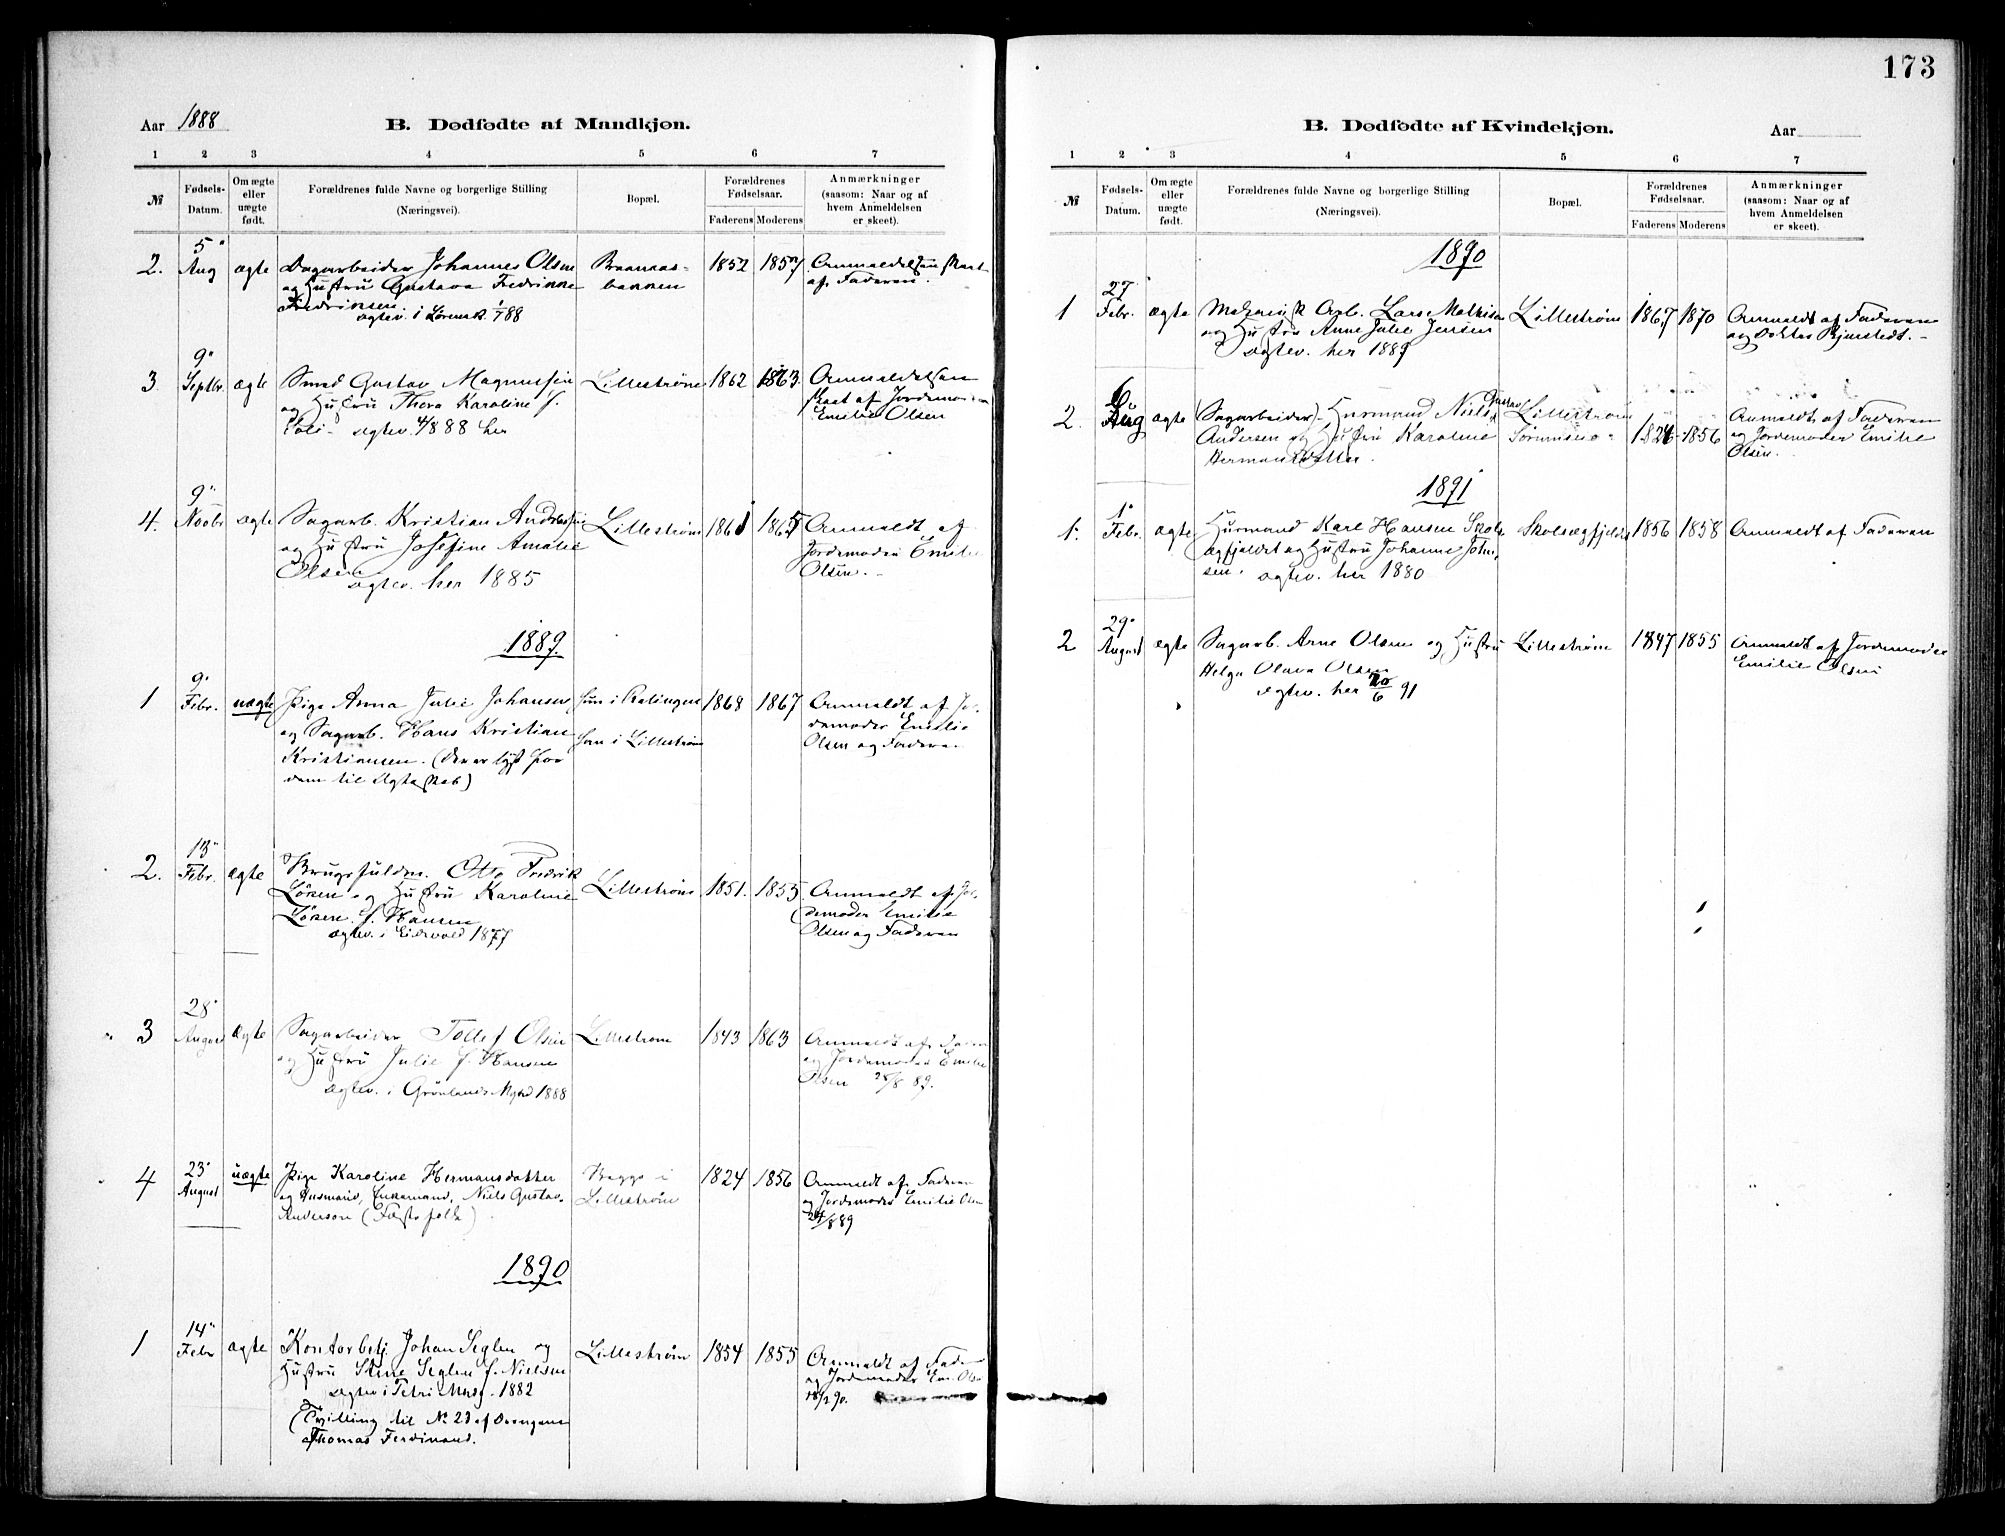 173
Aar 1888 B. Dødfødte af Mandkjøn.
1 2 3 4 5 6 7
№ Fødsels-Datum. Om ægte eller uægte født. Forældrenes fulde Navne og borgerlige Stilling (Næringsvei). Bopæl. Forældrenes Fødselsaar. Faderens Moderens Anmærkninger (saasom: Naar og af hvem Anmeldelsen er skeet).
2. 5" Aug ægte Dagarbeider Johannes Olsen 1852 1857 Anmeldelsen skeet
og Hustru Gustava Fredrikke bakken af Faderen.
Fredriksen
ægtev. i Lørensk. 1/7 88
3 9" Septbr. ægte Smed Gustav Magnussen Lillestrøm 1862 1863. Anmeldelsen
og Hustru Thora Karoline f. skeet af Jordemoder
ægtev. 4/8 88 her Emilie Olsen
4. 9" Novbr ægte Sagarb. Kristian Andreassen Lillestrøm 1861 1865 Anmeldt af
og Hustru Josefine Amalie Jordemoder Emilie
Olsen Olsen.
ægtev. her 1885
1889.
1 9" Febr. uægte Pige Anna Julie Johansen hun i Rælingen 1868 1867 Anmeldt af Jor-
og Sagarb. Hans Kristian han i Lillestrøm demoder Emilie
Kristiansen. (Der er lyst for Olsen og Faderen
dem til Ægteskab)
2. 13" Febr. ægte Brugsfuldm. Otto Fredrik Lillestrøm 1851. 1855 Anmeldt af Jor-
Løken og Hustru Karoline demoder Emilie
Løken f. Hansen Olsen og Faderen
ægtev. i Eidsvold 1877
3 28" August ægte Sagarbeider Tollef Olsen Lillestrøm 1843 1863 Anmeldt af Faderen
og Hustru Julie f. Hansen og Jordemoder Emilie
ægtev. i Grønlands Mghd 1888 Olsen 28/8 89.
4 23" August uægte Pige Karoline Hermansdatter Begge i 1824 1856 Anmeldt af Faderen
og Husmand, Enkemand, Niels Gustav Lillestrøm og Jordemoder Emilie Olsen
Andersen (Fæstefolk) 24/8 89
1890
1 14" Febr ægte Kontorbetj. Johan Seglen og Lillestrøm 1854 1855 Anmeldt af Fader
Hustru Stine Seglen f. Nielsen og Jordemoder Em. Olsen
ægtev i Petri Mngh. 1882 18/2 90.
(Tvilling til No 23 af Drengene
Thomas Ferdinand.
B. Dødfødte af Kvindekjøn. Aar
1 2 3 4 5 6 7
№ Fødsels-Datum. Om ægte eller uægte født. Forældrenes fulde Navne og borgerlige Stilling (Næringsvei). Bopæl. Forældrenes Fødselsaar. Faderens Moderens Anmærkninger (saasom: Naar og af hvem Anmeldelsen er skeet).
1890
1 27 Febr. ægte Arb. Lars Mathisen Lillestrøm 1867 1870 Anmeldt af Faderen
og Hustru Anne Julie Jensen og Doktor
ægtev. her 1889
2. 6 Aug ægte (Sagarbeider) Husmand Niels Gustav Lillestrøm
Andersen og Hustru Karoline 1824 1856 Anmeldt af Faderen
Hermansdatter. og Jordemoder Emilie
Olsen.
1891
1. 1" Febr. ægte Husmand Karl Hansen Skols- Skolsægfjeldet 1856 1858 Anmeldt af Faderen
ægfjeldet og Hustru Johanne John-
sen. ægtev. her 1880
2 29" August ægte Sagarb. Arne Olsen og Hustru Lillestrøm 1847 1855 Anmeldt af Jordemoder
Helga Olava Olsen Emilie Olsen
ægtev. her 20/6 91